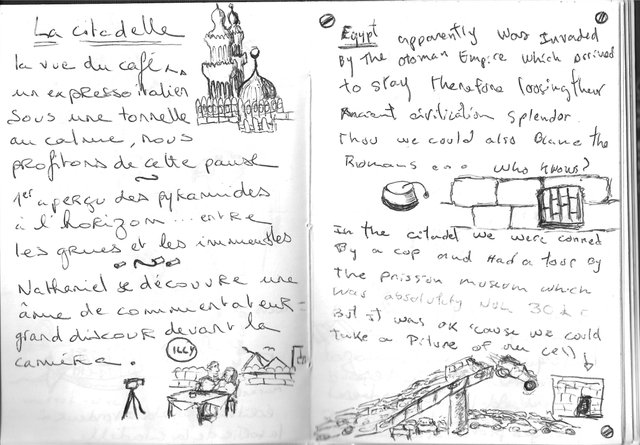 La citadelle
la vue du café,
un expresso italien
sous une tonnelle
au calme, nous
profitons de cette pause
1er aperçu des pyramides
à l'horizon... entre
les grues et les immeubles
Nathaniel se découvre une
âme de commentateur
grand discour devant la
caméra.
ILLY
Egypt apparently was Invaded
By the otoman Empire which arrived
to stay therefore loosing their
Ancient civilization splendor.
Thou we could also Blame the
Romans ... who knows?
In the citadel we were conned
By a cop and Had a tour by
the prission museum which
was absolutly
But it was ok 'cause we could
take a Picture of our cell